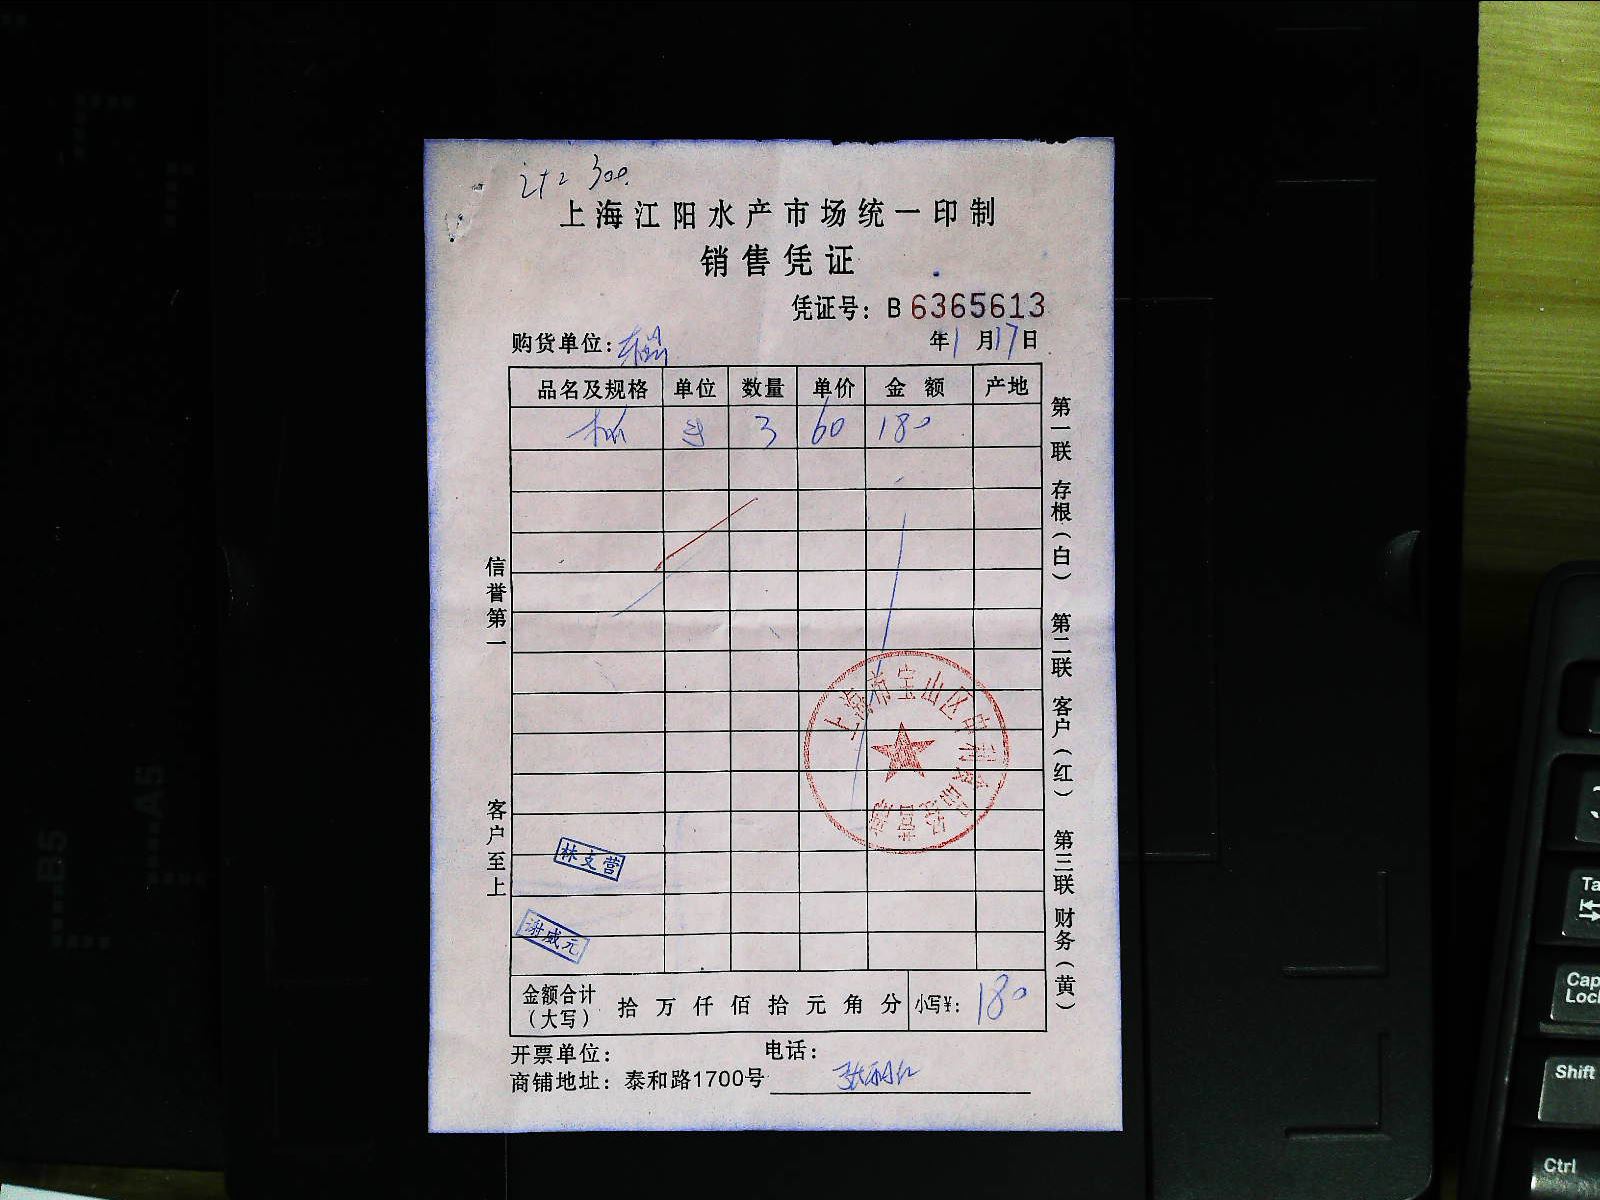 300
上海江阳水产市场统一印制
销售凭证
凭证号: B 6365613
购货单位:
年1月17日
品名及规格 单位 数量 单价 金额 产地
3 60 180
信誉第一
客户至上
第一联 存根(白) 第二联 客户(红) 第三联 财务(黄)
上海市宝山区申利食品经营部
林支营
谢威元
金额合计(大写) 拾 万 仟 佰 拾 元 角 分 小写¥: 180
开票单位: 电话:
商铺地址: 泰和路1700号
B5
A5
Cap
Lock
Shift
Ctrl